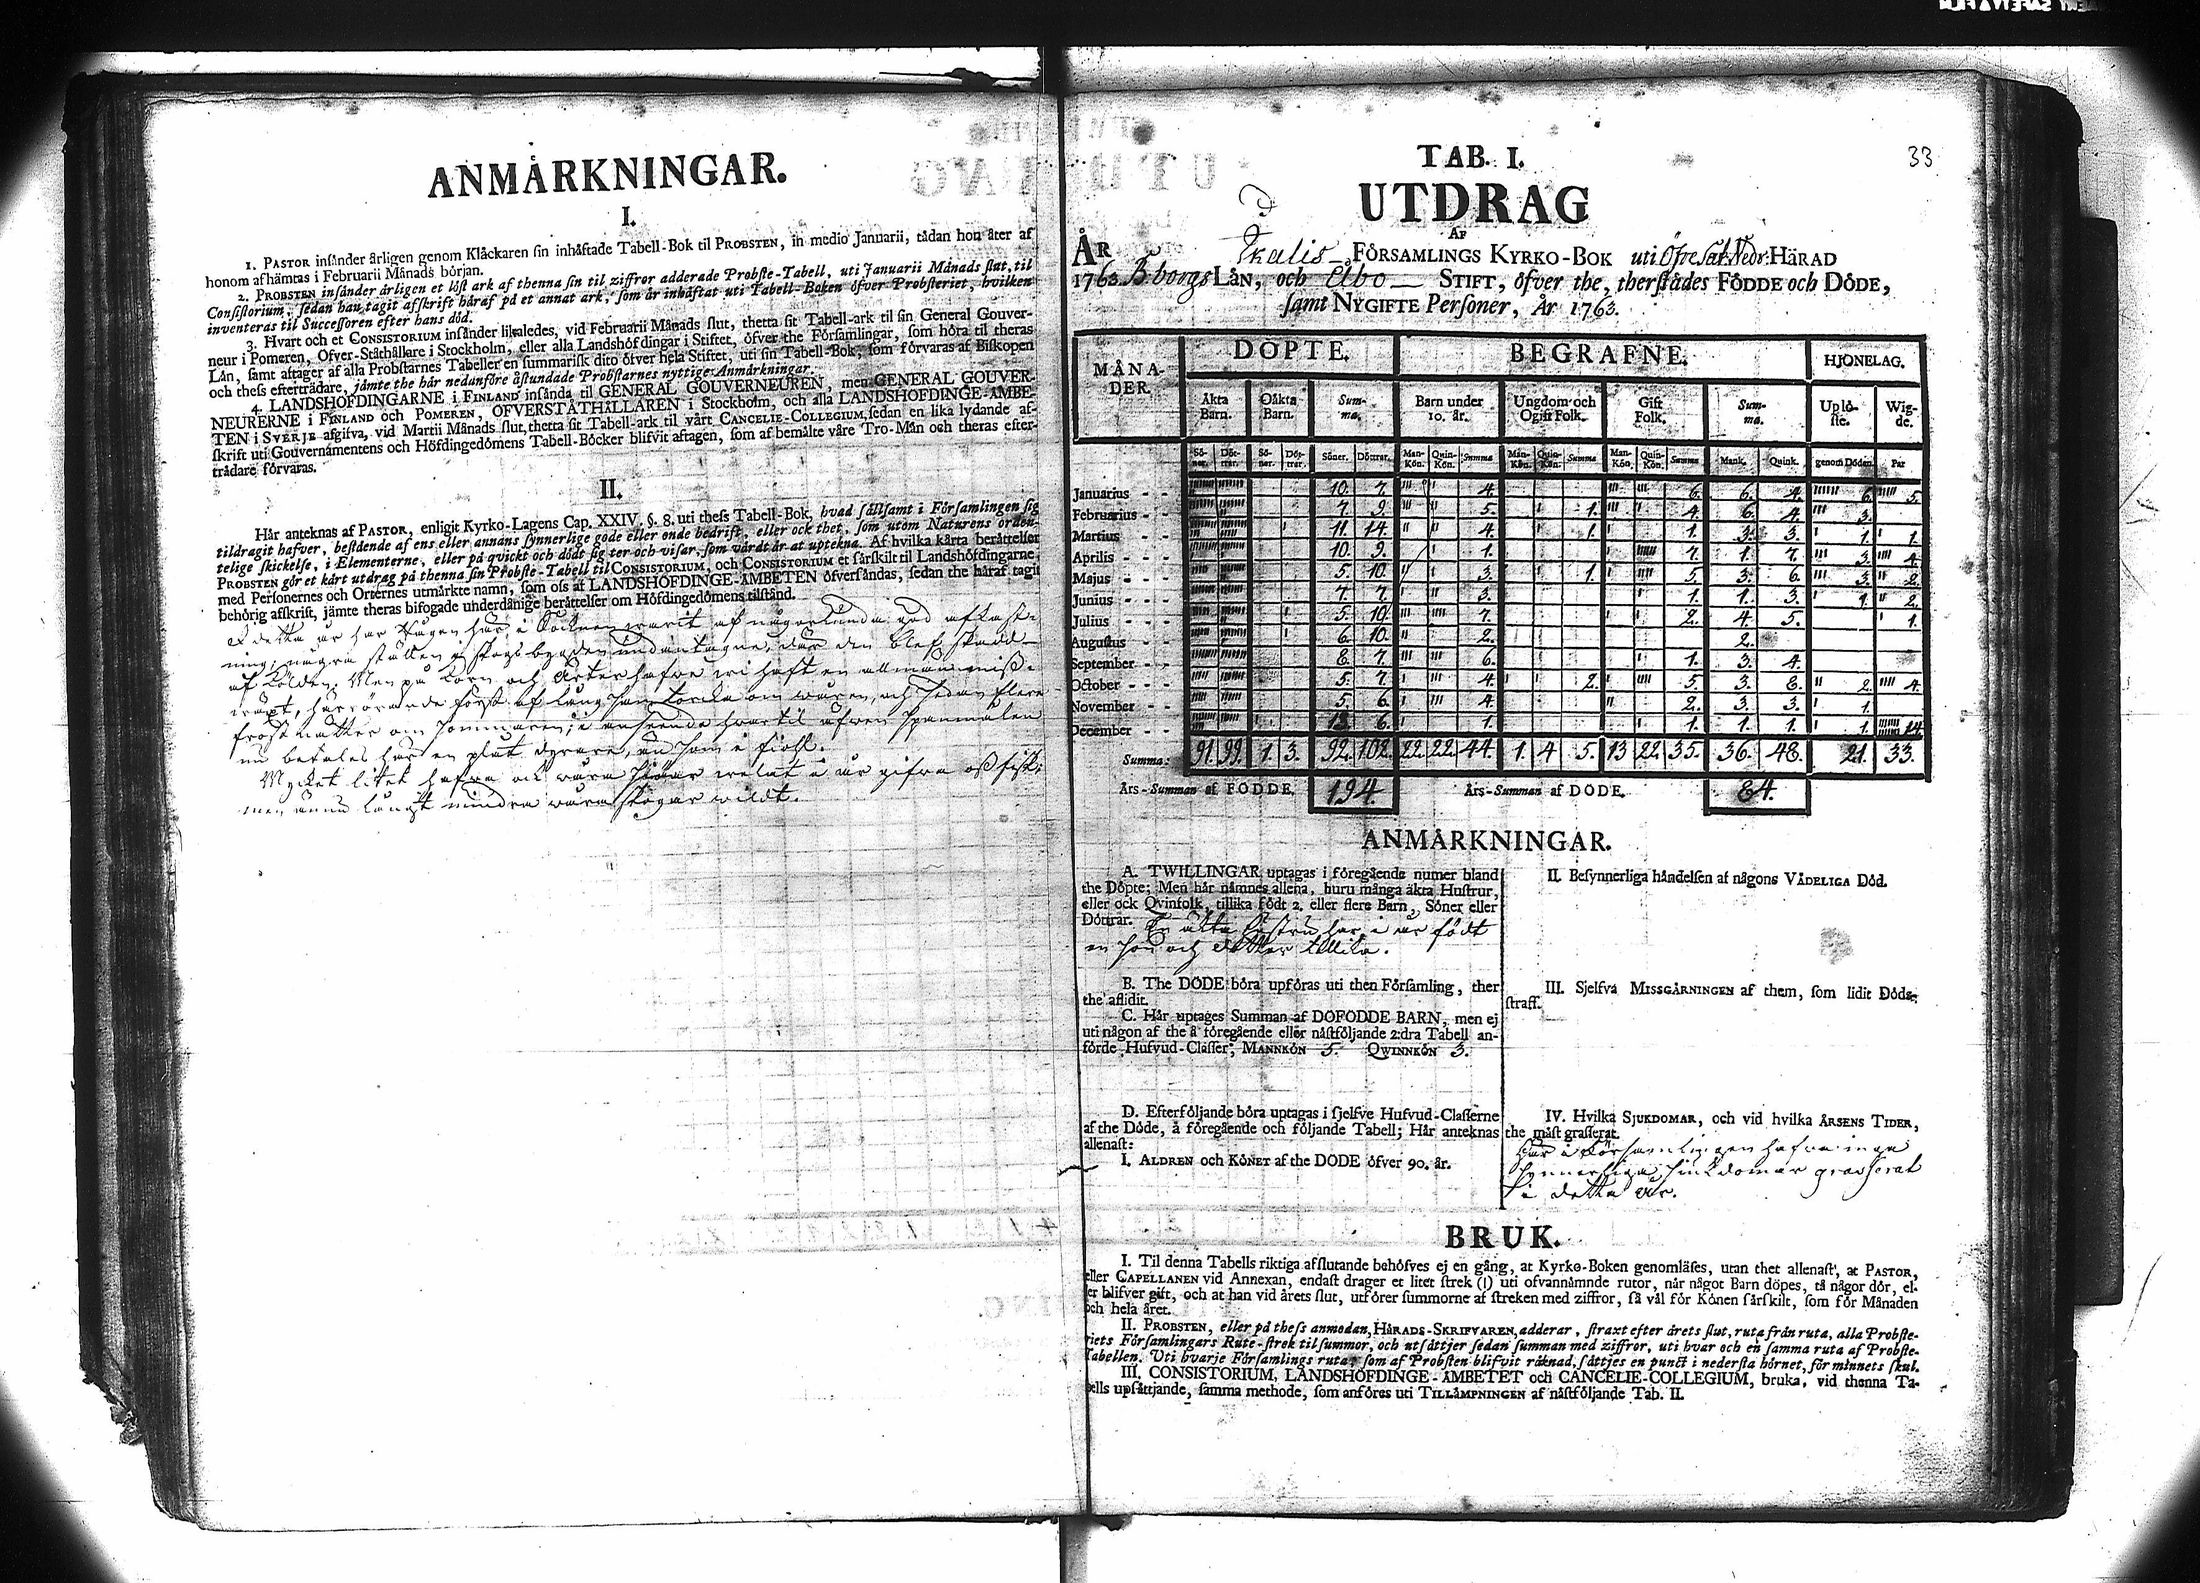 ANMÅRKNINGAR.
I.
1. PASTOR infånder årligen genom Klåckaren fin inhåftade Tabell-Bok til PROBSTEN, in medio Januarii, tådan hon åter af
honom afhämtas i Februarii Månads början.
2. PROBSTEN infånder årligen et löst ark af thenna fin til ziffror adderade Probste-Tabell, uti Januarii Månads slut, til
Consistorium; sedan han tagit afskrift håraf på et annat ark, som år inhåftat uti Tabell-Boken öfver Probsteriet, hvilken
inventeras til Successoren efter hans död.
3. Hvart och et CONSISTORIUM infånder likaledes, vid Februarii Månads slut, thetta sit Tabell-ark til sin General Gouver-
neur i Pomeren, Öfver-Ståthållare i Stockholm, eller alla Landshöfdingar i Stiftet, öfver the Församlingar, som höra til theras
Lån, samt aftager af alla Probstarnes Tabeller en summarisk dito öfver hela Stiftet, uti sin Tabell-Bok, som förvaras af Biskopen
och thess efterträdare, jämte the hår nedanföre åstundade Probstarnes nyttige Anmårkningar.
4. LANDSHÖFDINGARNE i FINLAND insånda til GENERAL GOUVERNEUREN, men GENERAL GOUVER-
NEURERNE i FINLAND och POMEREN, ÖFVERSTÅTHÅLLAREN i Stockholm, och alla LANDSHÖFDINGE-ÅMBE-
TEN i SVERJE afgifva, vid Martii Månads slut, thetta sit Tabell-ark til vårt CANCELIE-COLLEGIUM, sedan en lika lydande af-
skrift uti Gouvernämentens och Höfdingedömens Tabell-Böcker blifvit aftagen, som af bemålte våre Tro-Mån och theras efter-
trådare förvaras.
II.
Hår anteknas af PASTOR, enligit Kyrko-Lagens Cap. XXIV. §. 8. uti thess Tabell-Bok, hvad sållsamt i Församlingen sig
tildragit hafver, bestående af ens eller annans synnerlige gode eller onde bedrift, eller ock thet, som utom Naturens orden-
telige skickelse, i Elementerne, eller på qvickt och dödt sig ter och visar, som vårdt år at uptekna. Af hvilka kårta beråttelser
PROBSTEN gör et kårt utdrag på thenna sin Probste-Tabell til CONSISTORIUM, och CONSISTORIUM et sårskilt til Landshöfdingarne,
med Personernes och Orternes utmårkte namn, som oss af LANDSHÖFDINGE-ÅMBETEN öfversåndas, sedan the håraf tagit
behörig afskrift, jämte theras bifogade underdånige beråttelser om Höfdingedömens tilstånd.
detta år har Rågen här i Socknen warit af någorlunda god afkast-
ning, några ställen i skogsbygden undantagne, där den blef skadd
af kölden. Men på Korn och Ärter hafve wi haft en allmän miss-
wäxt, härrörande först af lång torka om wåren, och sedan flere
frost nätter om sommaren, i anseende hwartil äfwen spanmålen
nu betales här en plåt dyrare, än som i fiohl.
Mycket litet hafva ock wåra siöar welat i år gifva oss fisk;
men ännu långt mindre wåra skogar wildt.
33
TAB. I.
UTDRAG
AF
ÅR
1763
Ikalis FÖRSAMLINGS KYRKO-BOK uti Öfre Sat: Nedr: HÄRAD
Bborgs LÅN, och Åbo STIFT, öfver the, therstådes FÖDDE och DÖDE,
samt NYGIFTE Personer, År 1763.
MÅNA-DER. DÖPTE. BEGRAFNE. HJONELAG.
Äkta Barn. Oåkta Barn. Sum-ma. Barn under 10. år. Ungdom och Ogift Folk. Gift Folk. Sum-ma. Uplö-ste. Wig-de.
Sö-ner. Döt-trar. Sö-ner. Döt-trar. Söner. Döttrar. Man-Kön. Quin-Kön. Summa Man-Kön. Quin-Kön. Summa Man-Kön. Quin-Kön. Summa Mank. Quink. genom Döden. Par
Januarius - - 10. 7. 4. 6. 6. 4. 6. 5.
Februarius - - 7. 9. 5. 1. 4. 6. 4. 3.
Martius - - 11. 14. 4. 1. 1. 3. 3. 1. 1.
Aprilis - - 10. 9. 1. 7. 1. 7. 3. 4.
Majus - - 5. 10. 3. 1. 5. 3. 6. 3. 2.
Junius - - 7. 7. 3. 1. 1. 3. 1. 2.
Julius - - 5. 10. 7. 2. 4. 5. 1.
Augustus - - 6. 10. 2. 2.
September - - 8. 7. 6. 1. 3. 4.
October - - 5. 7. 4. 2. 5. 3. 8. 2. 4.
November - - 5. 6. 4. 2. 3. 3. 1.
December - - 13. 6. 1. 1. 1. 1. 1. 14.
Summa: 91. 99. 1. 3. 92. 102. 22. 22. 44. 1. 4. 5. 13 22. 35. 36. 48. 21. 33.
Års-Summan af FÖDDE. 194. Års-Summan af DÖDE. 84.
ANMÅRKNINGAR.
A. TWILLINGAR uptagas i föregående numer bland
the Döpte; Men hår nåmnes allena, huru många åkta Hustrur,
eller ock Qvinfolk, tillika födt 2. eller flere Barn, Söner eller
Döttrar. En äkta hustru har i år födt
en son och dotter tillika.
B. The DÖDE böra upföras uti then Församling, ther
the aflidit.
C. Hår uptages Summan af DÖFÖDDE BARN, men ej
uti någon af the å föregående eller nåstföljande 2:dra Tabell an-
förde Hufvud-Classer; MANNKÖN 5. QWINNKÖN 3.
D. Efterföljande böra uptagas i sjelfve Hufvud-Classerne
af the Döde, å föregående och följande Tabell; Hår anteknas
allenast:
I. ÅLDREN och KÖNET af the DÖDE öfver 90. år.
II. Besynnerliga håndelsen af någons VÅDELIGA Död.
III. Sjelfva MISSGÅRNINGEN af them, som lidit Döds-
straff.
IV. Hvilka SJUKDOMAR, och vid hvilka ÅRSENS TIDER,
the måst grasserat.
här i församlingen hafva inga
synnerliga siukdomar grasserat
i detta år.
BRUK.
I. Til denna Tabells riktiga afslutande behöfves ej en gång, at Kyrko-Boken genomläses, utan thet allenast, at PASTOR,
eller CAPELLANEN vid Annexan, endast drager et litet strek (|) uti ofvannåmnde rutor, når något Barn döpes, tå någor dör, el-
ler blifver gift, och at han vid årets slut, utförer summorne af streken med ziffror, så vål för Könen sårskilt, som för Månaden
och hela året.
II. PROBSTEN, eller på thess anmodan, HÅRADS-SKRIFVAREN, adderar, straxt efter årets slut, ruta från ruta, alla Probste-
riets Församlingars Rute-strek til summor, och utsåttjer sedan summan med ziffror, uti hvar och en samma ruta af Probste-
Tabellen. Uti hvarje Församlings ruta, som af Probsten blifvit råknad, såttjes en punct i nedersta hörnet, för minnets skul.
III. CONSISTORIUM, LANDSHÖFDINGE-ÅMBETET och CANCELIE-COLLEGIUM, bruka, vid thenna Ta-
bells upsåttjande, samma methode, som anföres uti TILLÅMPNINGEN af nåstföljande Tab. II.